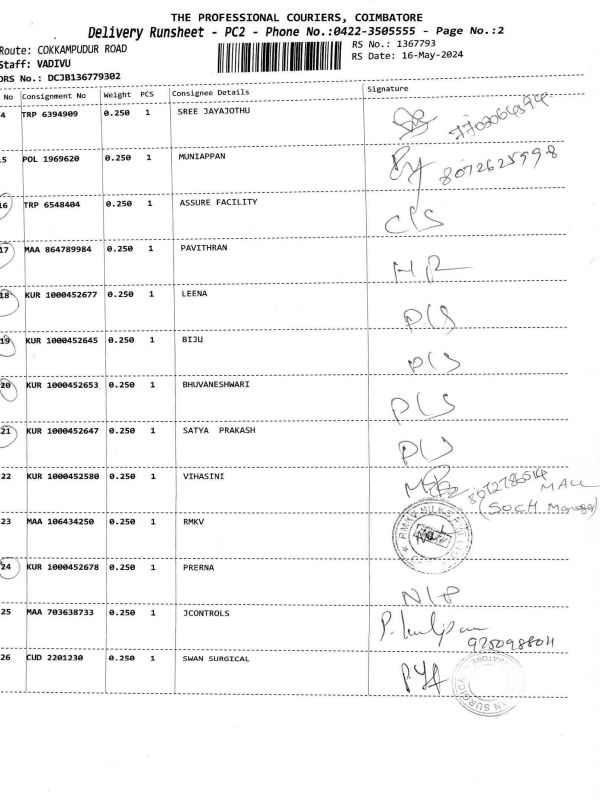 THE PROFESSIONAL COURIERS, COIMBATORE
Delivery Runsheet - PC2 - Phone No.:0422-3505555 - Page No.:2
Route: COKKAMPUDUR ROAD RS No.: 1367793
Staff: VADIVU RS Date: 16-May-2024
DRS No.: DCJB136779302
No Consignment No Weight PCS Consignee Details Signature
4 TRP 6394909 0.250 1 SREE JAYAJOTHU
5 POL 1969620 0.250 1 MUNIAPPAN 8072625998
16 TRP 6548404 0.250 1 ASSURE FACILITY C/S
17 MAA 864789984 0.250 1 PAVITHRAN HR
18 KUR 1000452677 0.250 1 LEENA P/S
19 KUR 1000452645 0.250 1 BIJU P/S
20 KUR 1000452653 0.250 1 BHUVANESHWARI P/S
21 KUR 1000452647 0.250 1 SATYA PRAKASH
22 KUR 1000452580 0.250 1 VIHASINI 8072786514 MALL
(SOCH Manager)
23 MAA 106434250 0.250 1 RMKV RMKV SILKS
24 KUR 1000452678 0.250 1 PRERNA N/P
25 MAA 703638733 0.250 1 JCONTROLS
26 CUD 2201230 0.250 1 SWAN SURGICAL